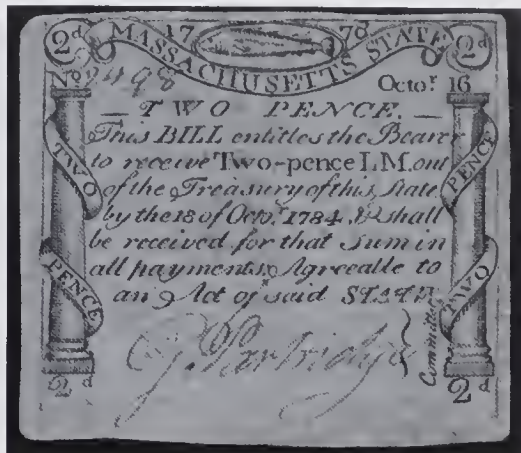 2d 17 78 2d
MASSACHUSETTS STATE
No Octor. 16
TWO PENCE.
This BILL entitles the Bearer
to receive Two-pence L.M. out
of the Treasury of this State
by the 18 of Octor. 1784. & shall
be received for that Sum in
all payments, Agreeable to
an Act of said STATE.
TWO PENCE
PENCE TWO
G. Partridge } Committee
2d 2d